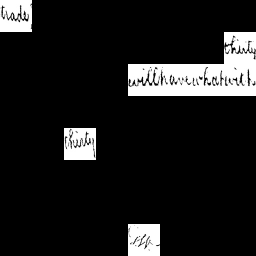 trade
thirty
will have what with
thirty